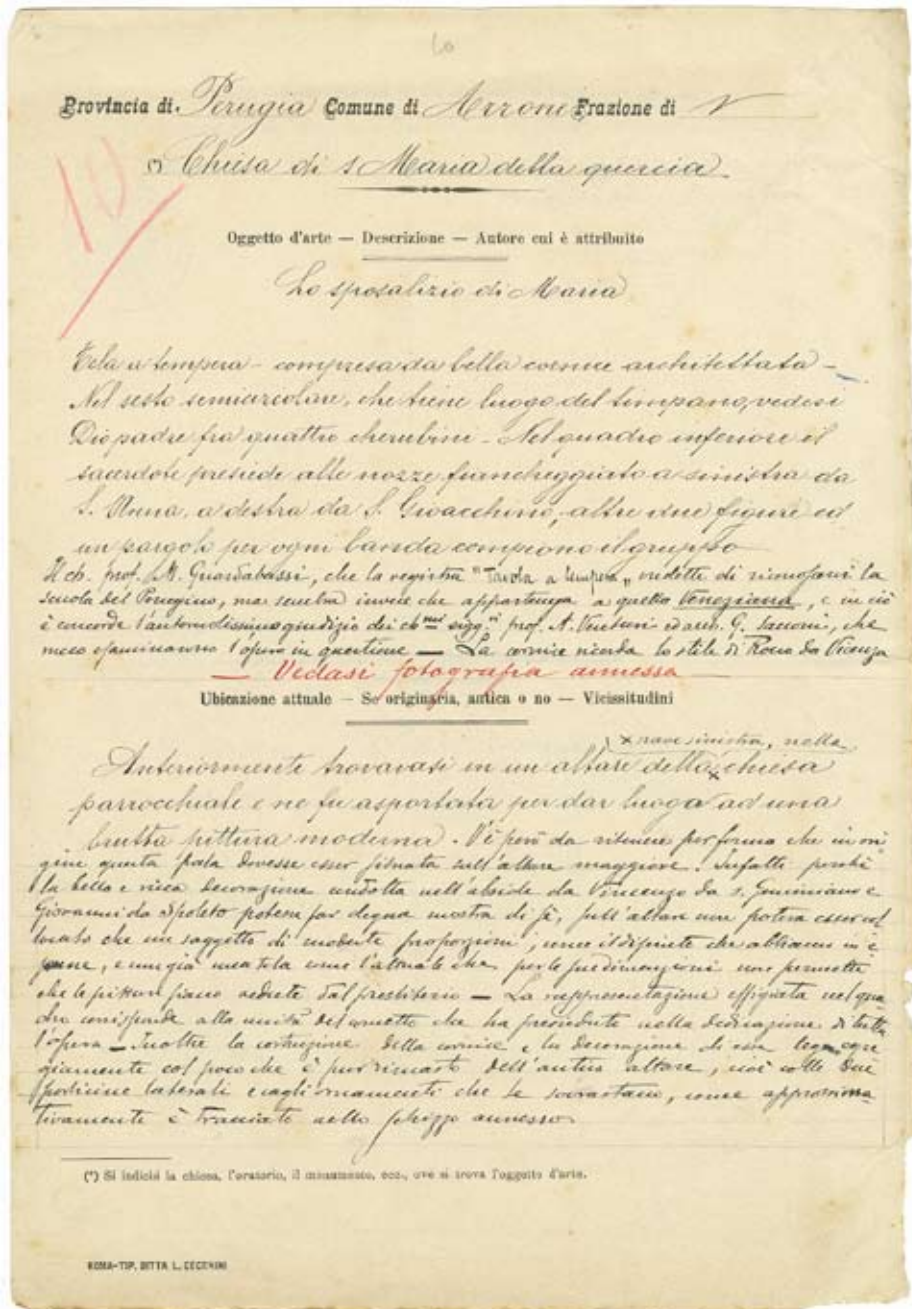 10
Provincia di Perugia Comune di Arrone Frazione di
10
(*) Chiesa di s Maria della quercia
Oggetto d'arte — Descrizione — Autore cui è attribuito
Lo sposalizio di Maria
Tela a tempera - compresa da bella cornice architettata -
Nel sesto semicircolare, che tiene luogo del timpano, vedesi
Dio padre fra quattro cherubini - Nel quadro inferiore il
sacerdote presiede alle nozze fiancheggiato a sinistra da
S. Anna, a destra da S. Gioacchino, altre due figure ed
un pargolo per ogni banda compiono il gruppo
Il ch. prof. M. Guardabassi, che la registra "Tavola a tempera", credette di riconoscervi la
scuola del Perugino, ma sembra invece che appartenga a quella Veneziana, e in ciò
è concorde l'autorevolissimo giudizio dei ch.mi sigg.ri prof. A. Venturi ed arch. G. Sacconi, che
meco esaminarono l'opera in questione — La cornice ricorda lo stile di Rocco da Vicenza
— Vedasi fotografia annessa
Ubicazione attuale — Se originaria, antica o no — Vicissitudini
× nave sinistra, nella
Anteriormente trovavasi in un altare della × chiesa
parrocchiale e ne fu asportata per dar luogo ad una
brutta pittura moderna. V'è però da ritenere per fermo che in ori
gine questa pala dovesse esser situata sull'altare maggiore. Infatti perchè
la bella e ricca decorazione condotta nell'abside da Vincenzo da s. Gimignano e
Giovanni da Spoleto potesse far degna mostra di sè, sull'altare non poteva esser col
locato che un soggetto di modeste proporzioni, come il dipinto che abbiamo in e
same, e non già una tela come l'attuale che per le sue dimensioni non permette
che le pitture siano vedute dal presbiterio — La rappresentazione effigiata nel qua
dro corrisponde alla unità del concetto che ha preceduto nella dedicazione di tutta
l'opera — Inoltre la costruzione della cornice e la decorazione di essa lega egre
giamente col poco che è pur rimasto dell'antico altare, cioè colle due
porticine laterali e cogli ornamenti che le sovrastano, come approssima
tivamente è tracciato nello schizzo annesso
(*) Si indichi la chiesa, l'oratorio, il monumento, ecc., ove si trova l'oggetto d'arte.
ROMA-TIP. DITTA L. CECCHINI